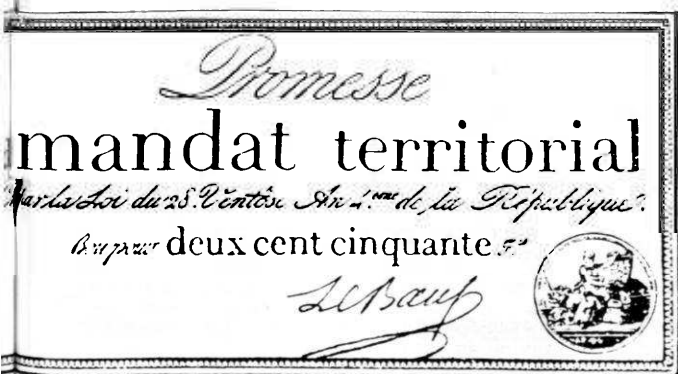 Promesse
mandat territorial
Par la Loi du 28 Ventôse An 4.eme de la République.
Bon pour deux cent cinquante
LeBœuf